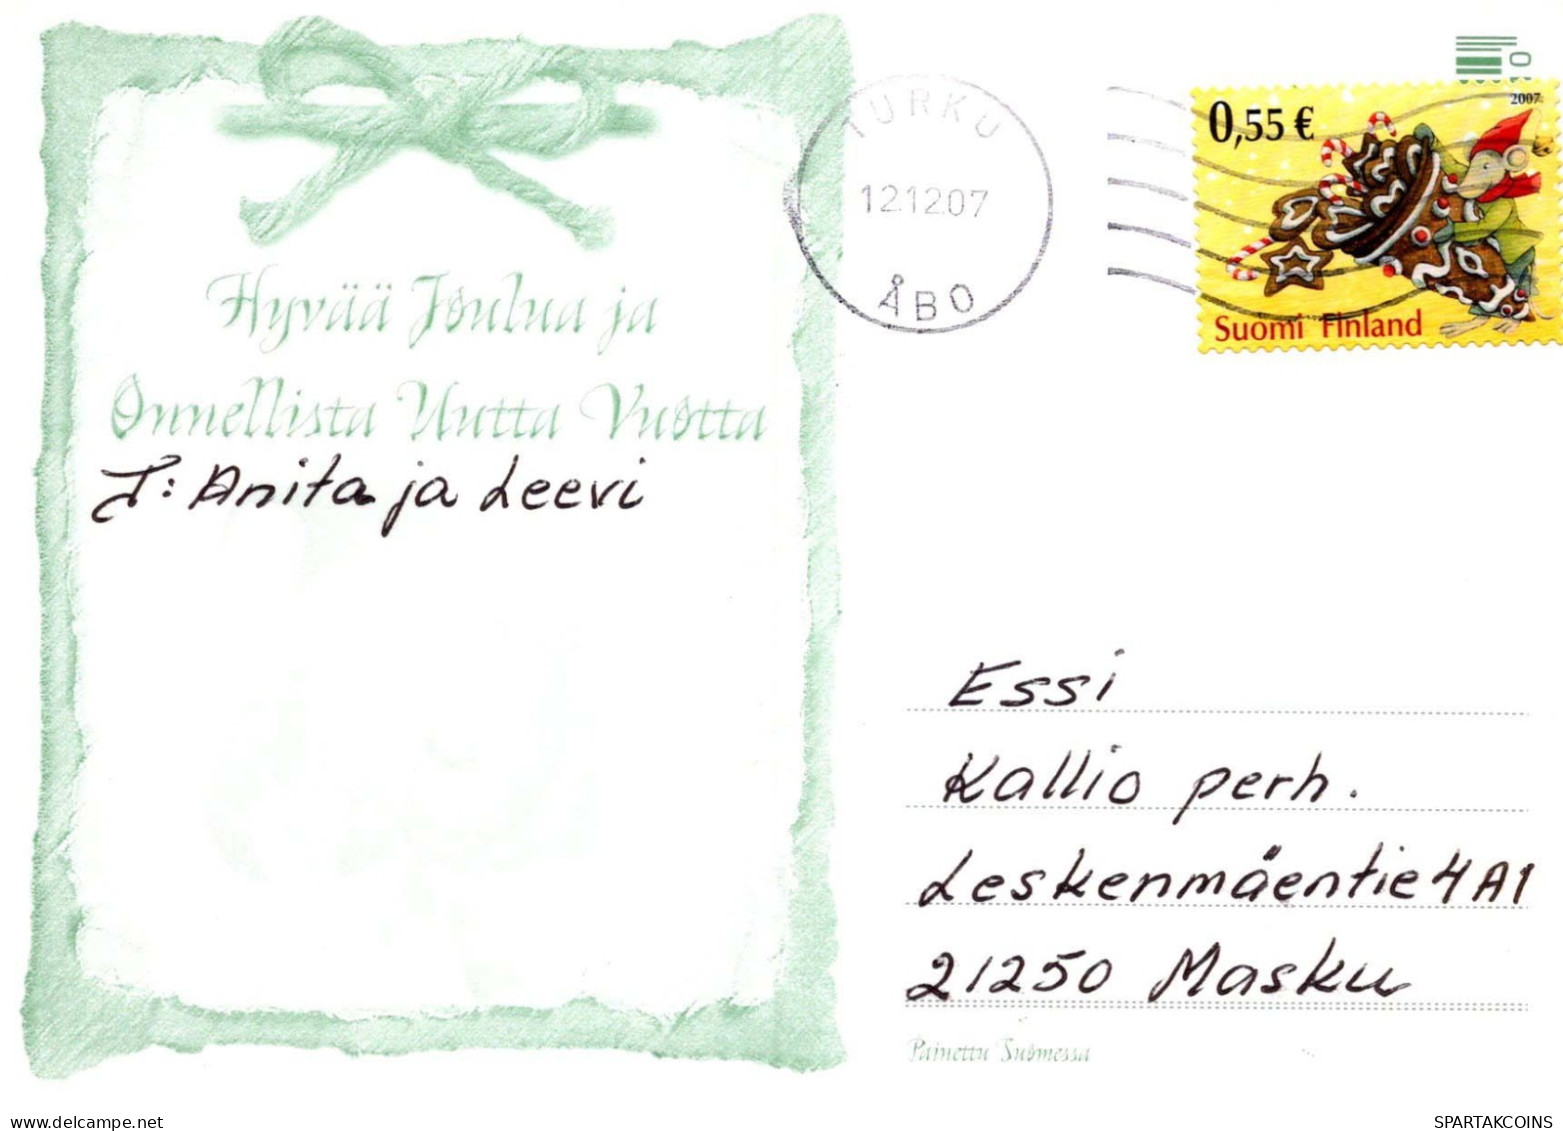 TURKU
12.12.07
ÅBO
0,55 €
2007
Suomi Finland
Hyvää Joulua ja
Onnellista Uutta Vuotta
T: Anita ja Leevi
Essi
Kallio perh.
Leskenmäentie 4 A1
21250 Masku
Painettu Suomessa
www.delcampe.net
SPARTAKCOINS